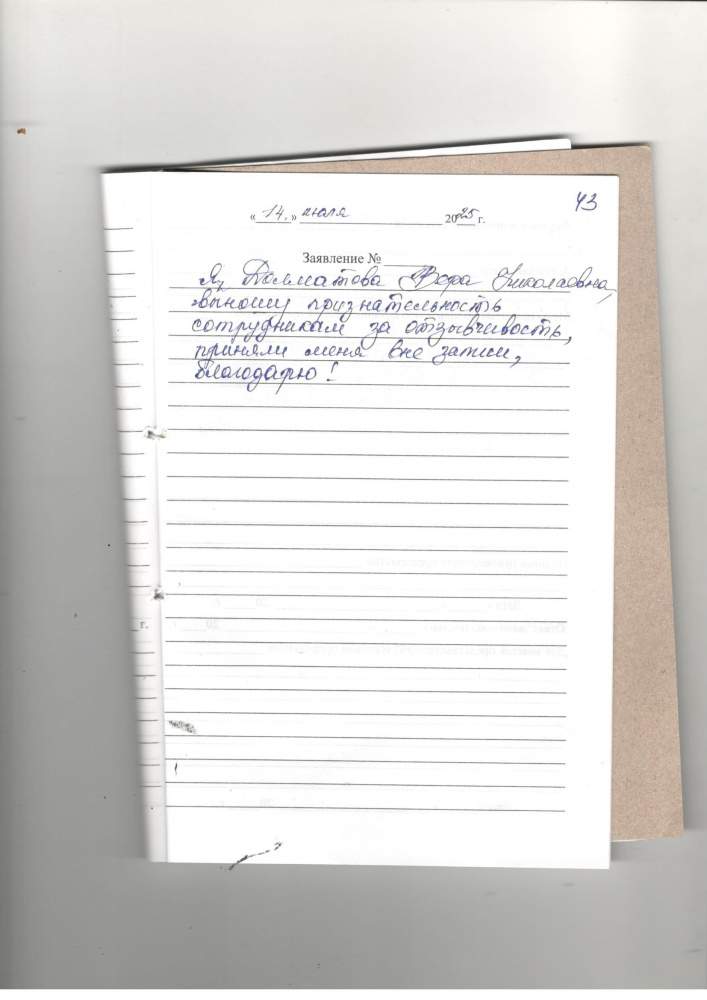 43
« 14. » июля 2025 г.
Заявление №
Я, Долматова Вера Николаевна,
выношу признательность
сотрудникам за отзывчивость,
приняли меня вне записи,
благодарю!
г.